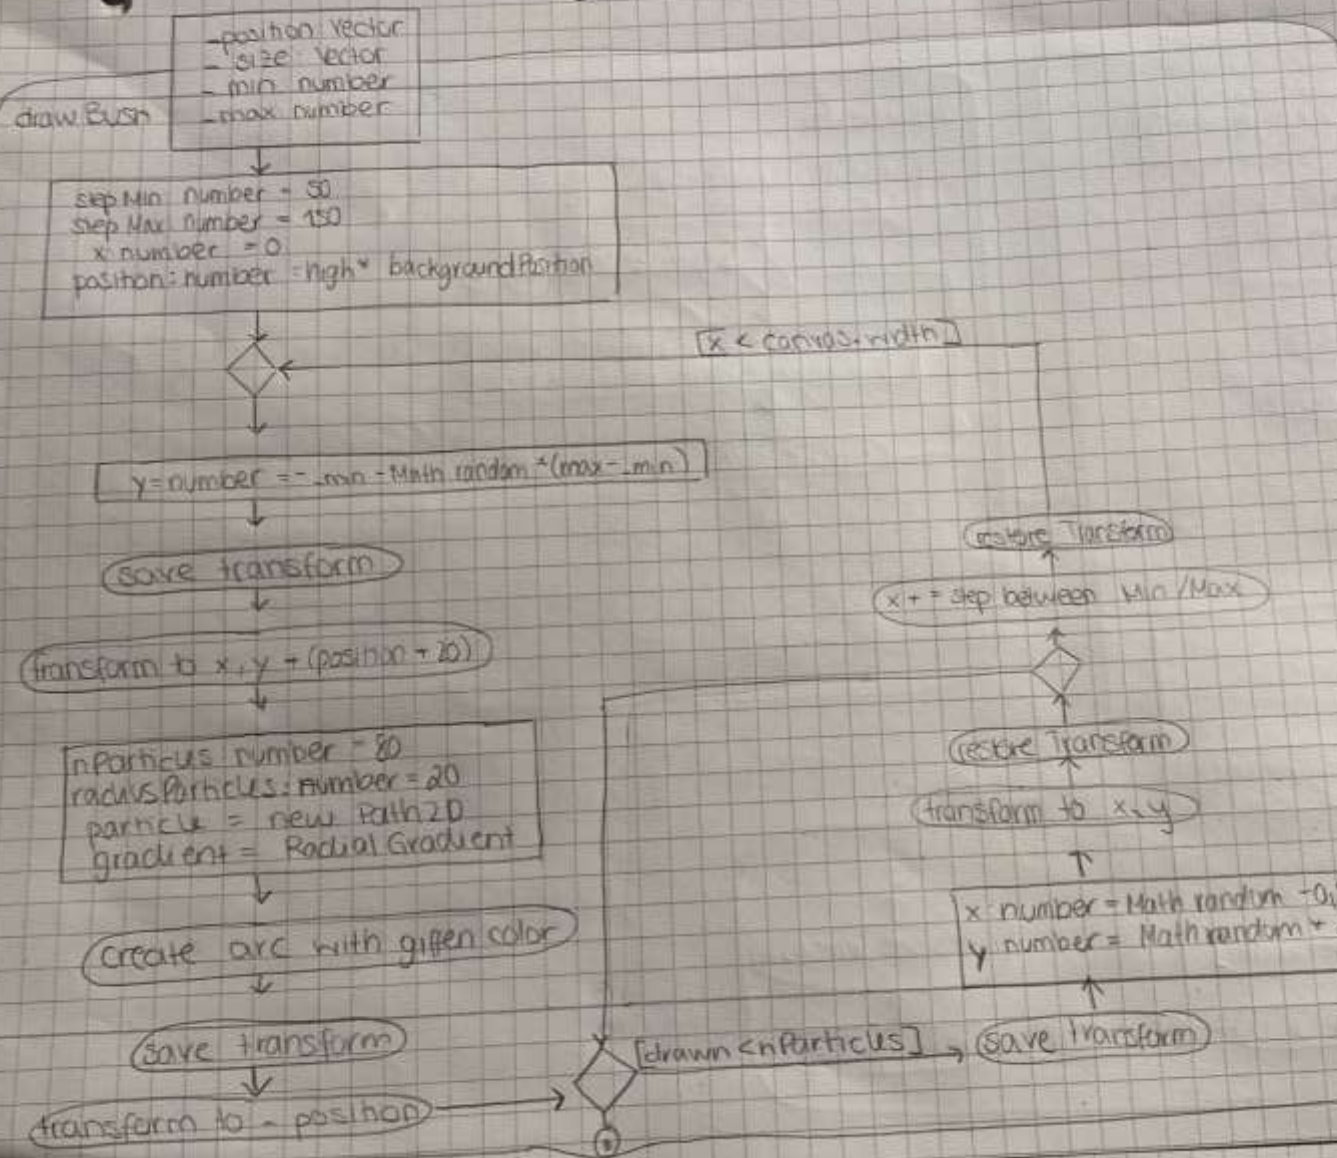 _position: Vector
_size: Vector
_min number
_max number
drawBush
stepMin number = 50
stepMax number = 150
x number = 0
position: number = high* backgroundPosition
[x < canvas.width]
y=number = - _min - Math random *(max-_min)
save transform
transform to x, y + (position + 20)
nParticles number = 80
radiusParticles: number = 20
particle = new Path2D
gradient = Radial Gradient
create arc with giffen color
save transform
transform to _position
[drawn <nParticles]
save transform
x number = Math random
y number = Math random *
transform to x, y
restore Transform
x + = step between Min/Max
restore Transform